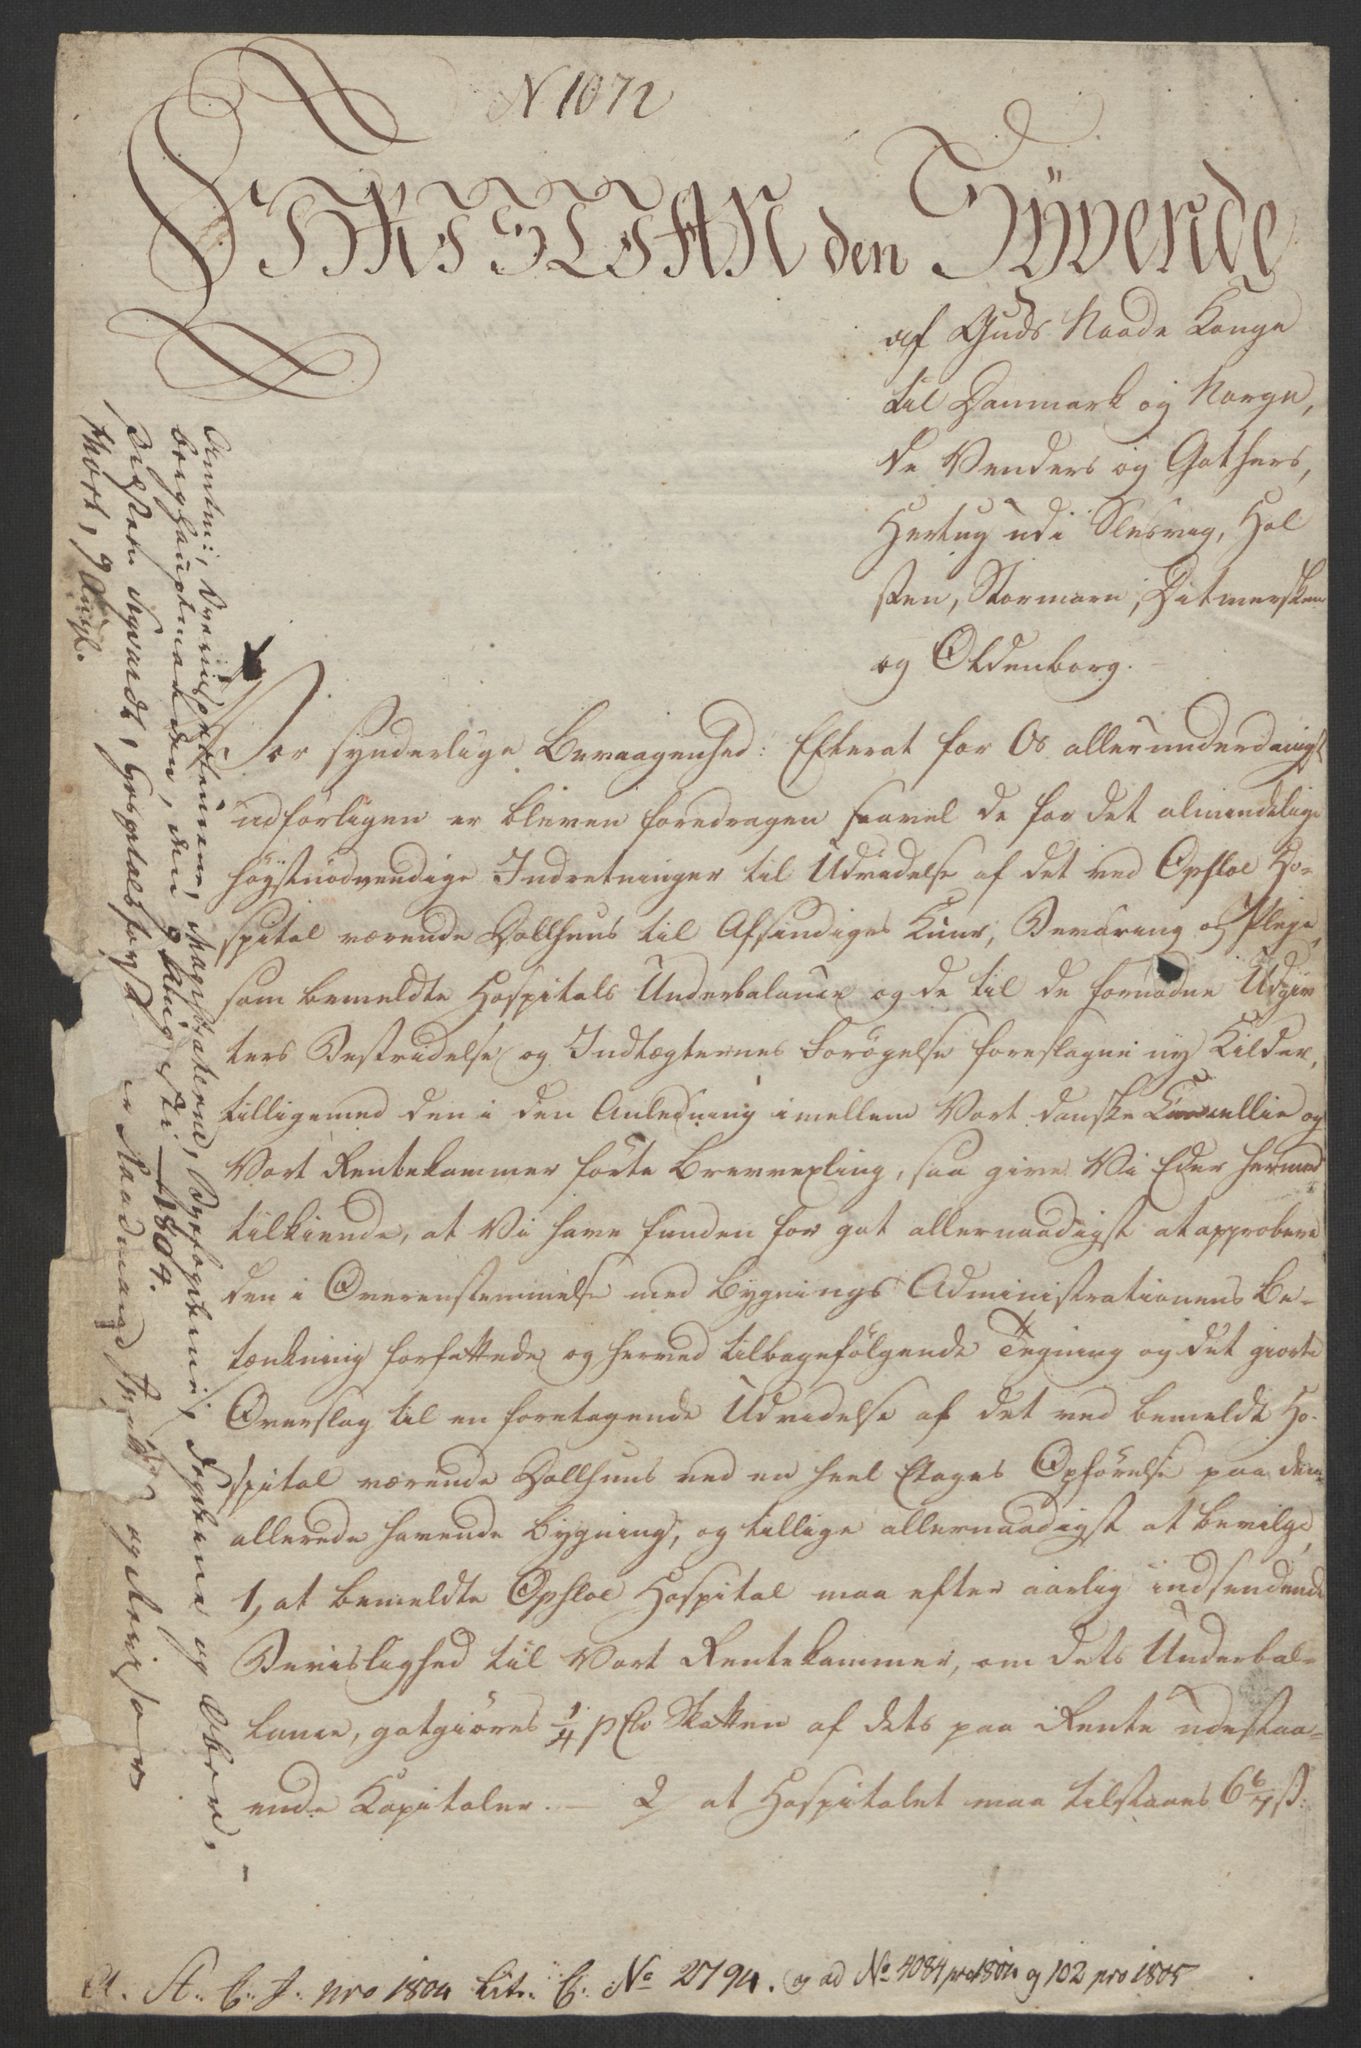 N 1072
CHRISTIAN den Syvende
af Guds Naade Konge
til Danmark og Norge,
de Venders og Gothers,
Hertug udi Slesvig, Hol
sten, Stormarn, Ditmersken
og Oldenborg.
Vor synderlige Bevaagenhed: Efterat for Os allerunderdanigst
udförligen er bleven foredragen saavel de for det almindelige
högstnödvendige Indretninger til Udvidelse af det ved Opsloe Ho-
spital værende Dollhuus til Afsindiges Kuur, Bevaring og Pleje,
som bemeldte Hospitals Underbalance og de til de fornödne Udgiv
ters Bestridelse og Indtægternes Forögelse foreslagne ny Kilder,
tilligemed den i den Anledning imellem Vort danske Cancellie og
Vort Rentekammer förte Brevvexling, saa give Vi Eder hermed
tilkiende, at Vi have funden for got allernaadigst at approbere
den i Overenstemmelse med Bygnings Administrationens Be-
tænkning forfattede og herved tilbagefölgende Tegning og det giorte
Overslag til en foretagende Udvidelse af det ved bemeldte Ho-
spital værende Dollhuus ved en heel Etages Opförelse paa den
allerede havende Bygning, og tillige allernaadigst at bevilge,
1, at bemeldte Opsloe Hospital maa efter aarlig indsendende
Beviislighed til Vort Rentekammer, om dets Underbal-
lance, gotgiöres 1/4 p Cto Skatten af dets paa Rente udestaa-
ende Kapitaler. - 2/ at Hospitalet maa tilstaaes 6 6/7 ß:
Magistraten, Byefogden, og Ober,
berghauptmanden, den 9 August 1804.
Hospitalsfogst
Raadmand og Revisor
A. A. C. J. pro 1804 Litr. C. No 2794. og ad No 4084 pro 1804 og 102 pro 1805